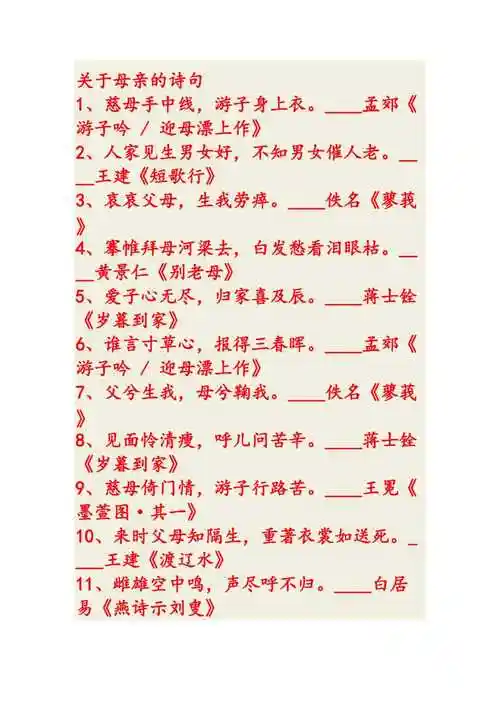 关于母亲的诗句
1、慈母手中线，游子身上衣。____孟郊《
游子吟 / 迎母漂上作》
2、人家见生男女好，不知男女催人老。__
__王建《短歌行》
3、哀哀父母，生我劳瘁。____佚名《蓼莪
》
4、搴帏拜母河梁去，白发愁看泪眼枯。__
__黄景仁《别老母》
5、爱子心无尽，归家喜及辰。____蒋士铨
《岁暮到家》
6、谁言寸草心，报得三春晖。____孟郊《
游子吟 / 迎母漂上作》
7、父兮生我，母兮鞠我。____佚名《蓼莪
》
8、见面怜清瘦，呼儿问苦辛。____蒋士铨
《岁暮到家》
9、慈母倚门情，游子行路苦。____王冕《
墨萱图·其一》
10、来时父母知隔生，重著衣裳如送死。_
___王建《渡辽水》
11、雌雄空中鸣，声尽呼不归。____白居
易《燕诗示刘叟》